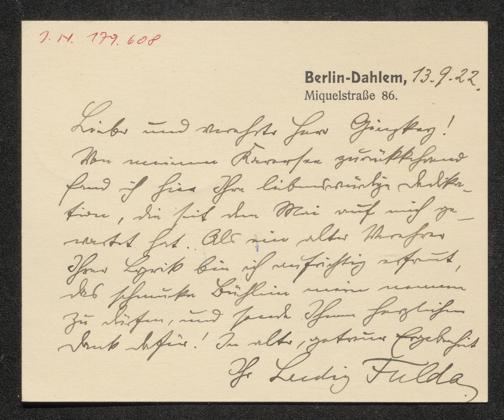 I. N. 179.608
Berlin-Dahlem, 13.9.22.
Miquelstraße 86.
Lieber und verehrter Herr Ginzkey!
Von meinem Karersee zurückkehrend
fand ich hier Ihre liebenswürdige Dedika-
tion, die seit dem Mai auf mich ge-
wartet hat. Als ein alter Verehrer
Ihrer Lyrik bin ich aufrichtig erfreut,
das schmucke Büchlein mein nennen
zu dürfen, und sende Ihnen herzlichen
Dank dafür! In alter, getreuer Ergebenheit
Ihr Ludwig Fulda